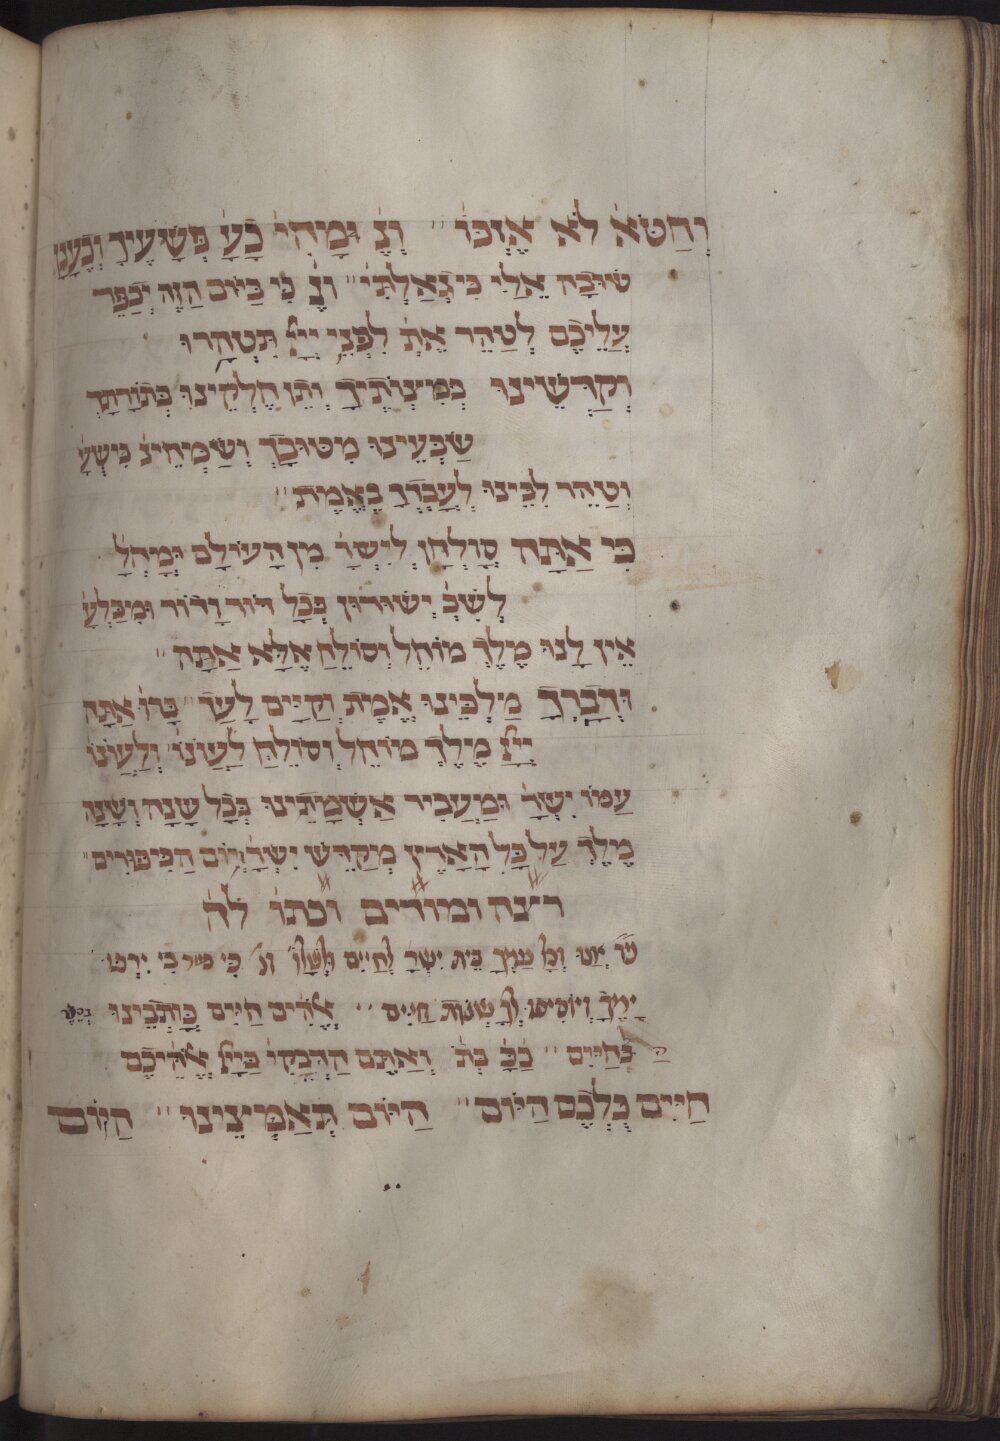 וְחַטֹּא֯ לֹא אֶזְכּוֹ֯ ״ וְנֶ֯ וּמָחִי֯ כָּעָ֯ פְּשָׁעֶיךָ וְכֶעָנָן
שׁוּבָה אֵלַי כִּי גְאַלְתִּי֯ ״ וְנֶ֯ כִּי בַיּוֹם הַזֶּה יְכַפֵּר
עֲלֵיכֶם לְטַהֵר אֶתְ֯ לִפְנֵי יְיָ֯ תִּטְהָרוּ
וְקַדְּשֵׁינוּ בְּמִצְוֹתֶיךָ וְתֵן חֶלְקֵינוּ בְּתוֹרָתָךְ
שַׂבְּעֵינוּ מִטּוּבָךְ וְשַׂמְּחֵינ֯ בִּישְׁעָ֯
וְטַהֵר לִבֵּינוּ לְעָבְדְּךָ בֶּאֱמֶת ״
כִּי אַתָּה סָוֹלְחָן לְיִשְׂרָ֯ מִן הָעוֹלָם וּמָחְלָ֯
לְשִׁבְ֯ יְשׁוּרוּן בְּכָל דּוֹר וָדוֹר וּמִבַּלְעָ֯
אֵין לָנוּ מֶלֶךְ מוֹחֵל וְסוֹלֵחַ אֶלָּא אַתָּה ״
וּדְבָרְךָ מַלְכֵּינוּ אֱמֶת וְקַיָּים לָעַד֯ ״ בָּרוּ֯ אַתָּה
יְיָ֯ מֶלֶךְ מוֹחֵל וְסוֹלֵחַ לַעֲוֹנוֹ֯ וְלַעֲוֹנוֹ֯
עַמּוֹ יִשְׂרָ֯ וּמַעֲבִיר אַשְׁמָתֵינוּ בְּכָל שָׁנָה וְשָׁנָה
מֶלֶךְ עַל כָּל הָאָרֶץ מְקַדֵּשׁ יִשְׂרָ֯ וְיוֹם הַכִּיפּוּרִים ״
רצה ומודים וכתו֯ לח֯
וְכָל עַמְּךָ בֵּית יִשְׂרָ֯ לְחַיִּים כִּי בִי יִרְבּוּ
יָמֶךָ וְיוֹסִיפוּ לְךָ שְׁנוֹת חַיִּים ״ אֱלֹהִים חַיִּים כָּתְבֵינוּ בְּסֵפֶ֯
בְּחַיִּים ״ כַּכָּ֯ כְּתֹ֯ וְאַתֶּם הַדְּבֵקִי֯ בַּייָ֯ אֱלֹהֵיכֶם
חַיִּים כֻּלְּכֶם הַיּוֹם ״ הַיּוֹם תְּאַמְּצֵינוּ ״ הַיּוֹם